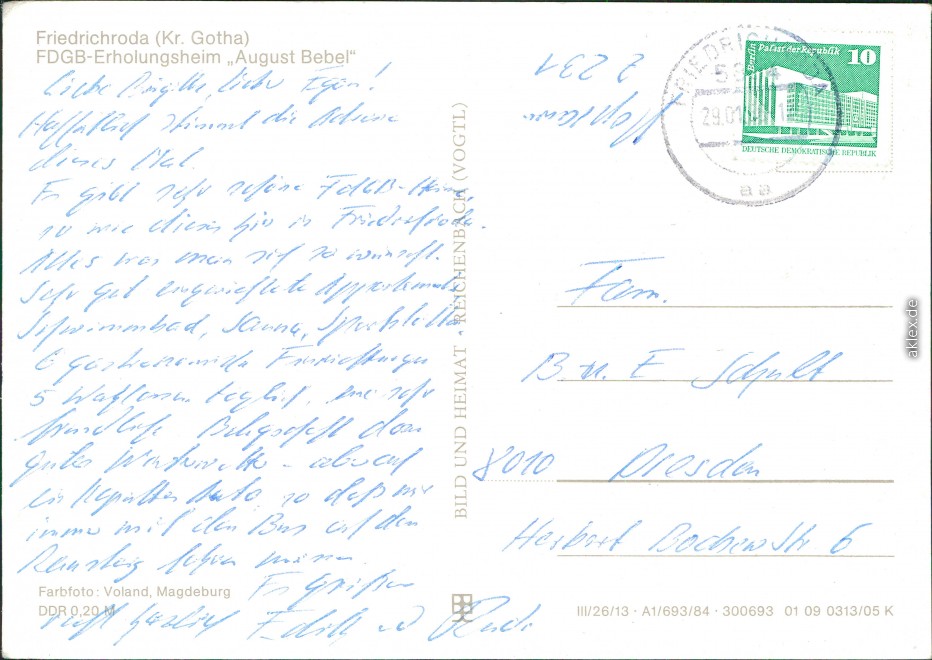 Friedrichroda (Kr. Gotha)
FDGB-Erholungsheim „August Bebel“
Liebe Brigitte, lieber Egon!
Hoffentlich stimmt die Adresse
dieses Mal.
Es gibt sehr schöne FDGB-Heime
so wie dieses hier in Friedrichroda.
Alles was man sich so wünscht.
Sehr gut eingerichtete Appartements
Schwimmbad, Sauna,
6 gastronomische Einrichtungen
5 Wahlessen täglich, eine sehr
freundliche Belegschaft dazu
gutes Winterwetter - aber auch
ein kaputtes Auto so daß wir
immer mit dem Bus auf den
Rennsteig fahren müssen.
Es Grüßen
recht herzlich Edith und
Farbfoto: Voland, Magdeburg
DDR 0,20 M
BILD UND HEIMAT · REICHENBACH (VOGTL)
2231
FRIEDRICHRODA
29.01
aa
Berlin Palast der Republik 10
DEUTSCHE DEMOKRATISCHE REPUBLIK
Fam.
B. u. E Schult
8010 Dresden
Herbert Bochow Str 6
III/26/13 · A1/693/84 · 300693 01 09 0313/05 K
aklex.de